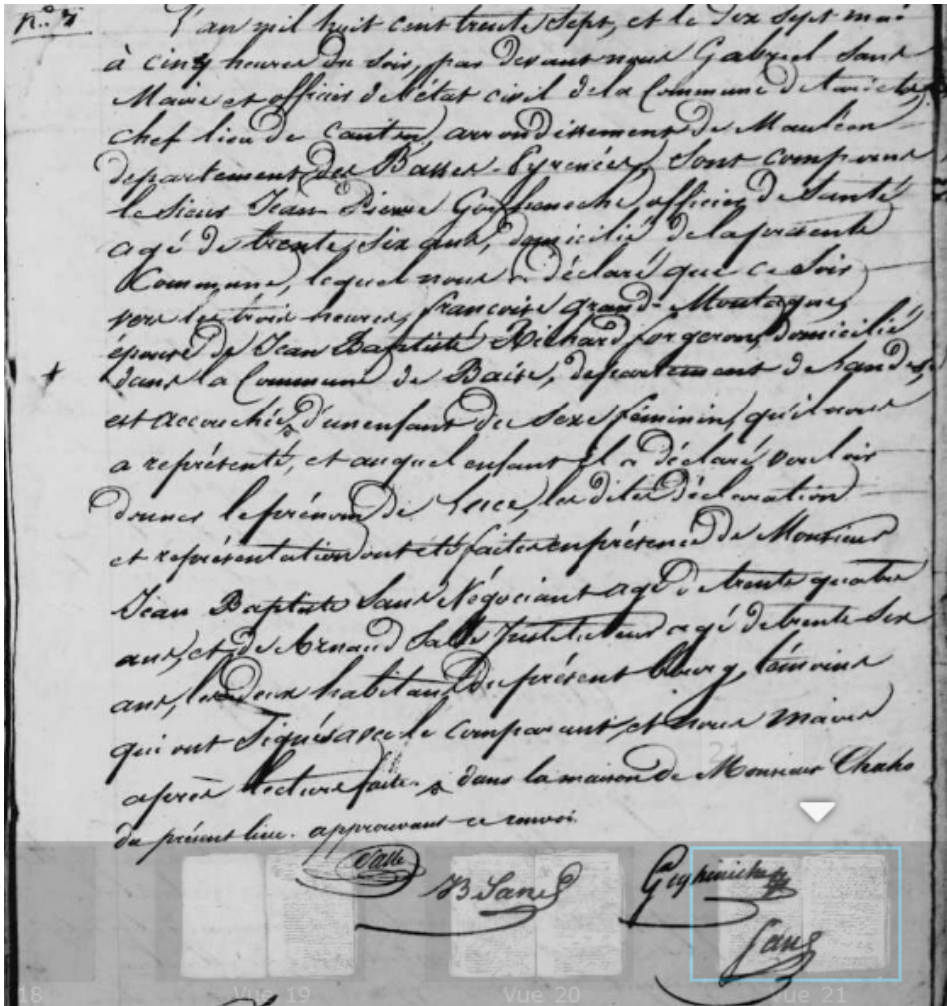 n.° 7
L'an mil huit cent trente Sept, et le Dix Sept mai
à cinq heures du soir, par devant nous Gabriel Sans
Maire et officier de l'état civil de la Commune de
chef lieu de Canton, arrondissement de Mauléon
département des Basses-Pyrenées, Sont comparus
le Sieur Jean-Pierre officier de Santé
agé de trente six ans, domicilié de la présente
Commune, lequel nous a déclaré que ce Soir
vers les trois heures, françoise grand-Montagne,
épouse de Jean Baptiste Richard forgeron, domicilié
dans la Commune de departement de Landes,
est accouchée d'un enfant de Sexe féminin, qu'il nous
a représenté, et auquel enfant il a déclaré vouloir
donner le prénom de les dites déclaration
et représentation ont été faites en présence de Monsieur
Jean Baptiste Sans Négociant agé de trente quatre
ans, et de Arnaud Salle Instituteur agé de trente Six
ans, les deux habitans du présent bourg, témoins
qui ont Signés avec le comparant, et nous maire
après lecture faite. dans la maison de Monsieur Chaho
du présent lieu. approuvant ce renvoi.
Salle
JB Sans
Sans
18
Vue 19
Vue 20
Vue 21